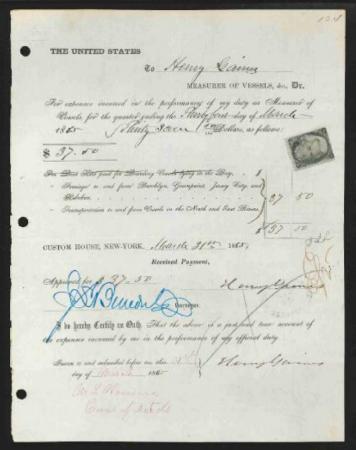 124
THE UNITED STATES
To Henry
MEASURER OF VESSELS, &c., Dr.
For expenses incurred in the performance of my duty as Measurer of
Vessels, for the quarter ending the Thirty first day of March
1865 Thirty Dollars, as follows:
$ 37.50
For Boat Hire paid for Boarding Vessels lying in the Bay, $
" Ferriage to and from Brooklyn, Greenpoint, Jersey City, and
Hoboken
" Transportation to and from Vessels in the North and East Rivers
37 50
$ 37.50
CUSTOM HOUSE, NEW-YORK, March 31st 1865.
Received Payment,
Approved for $ 37.50
Henry
Surveyor.
I do hereby Certify on Oath, That the above is a just and true account of
the expenses incurred by me in the performance of my official duty.
Sworn to and subscribed before me this
day of March 1865
Henry